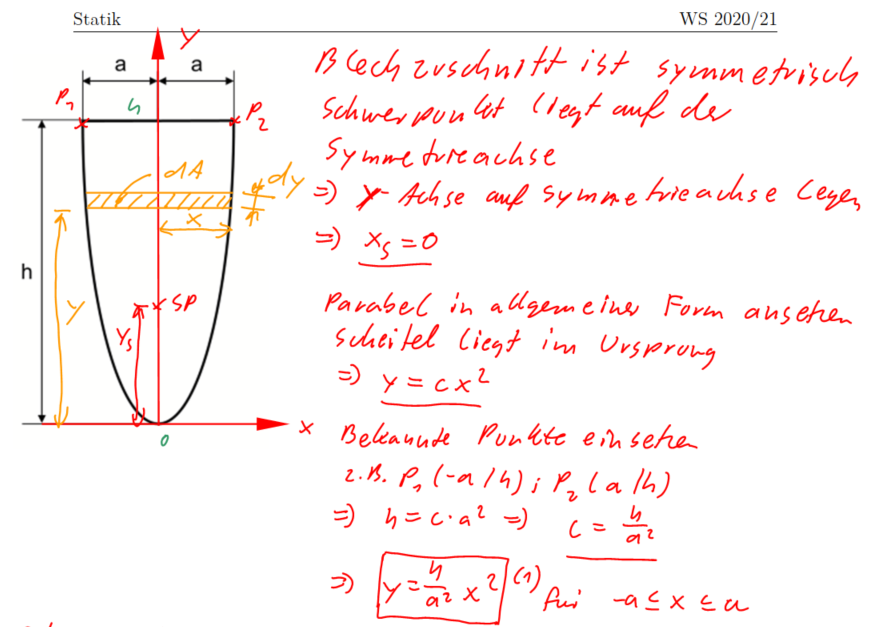 Statik
WS 2020/21
y
a
a
P₁
h
P₂
dA
dy
x
h
y
SP
yₛ
x
0
Blechzuschnitt ist symmetrisch
Schwerpunkt liegt auf der
Symmetrieachse
=> y-Achse auf Symmetrieachse legen
=> xₛ = 0
Parabel in allgemeiner Form ansetzen
Scheitel liegt im Ursprung
=> y = cx²
Bekannte Punkte einsetzen
z.B. P₁ (-a/h) ; P₂ (a/h)
=> h = c·a² => c = h/a²
=> y = h/a² x² (1) für -a ≤ x ≤ a